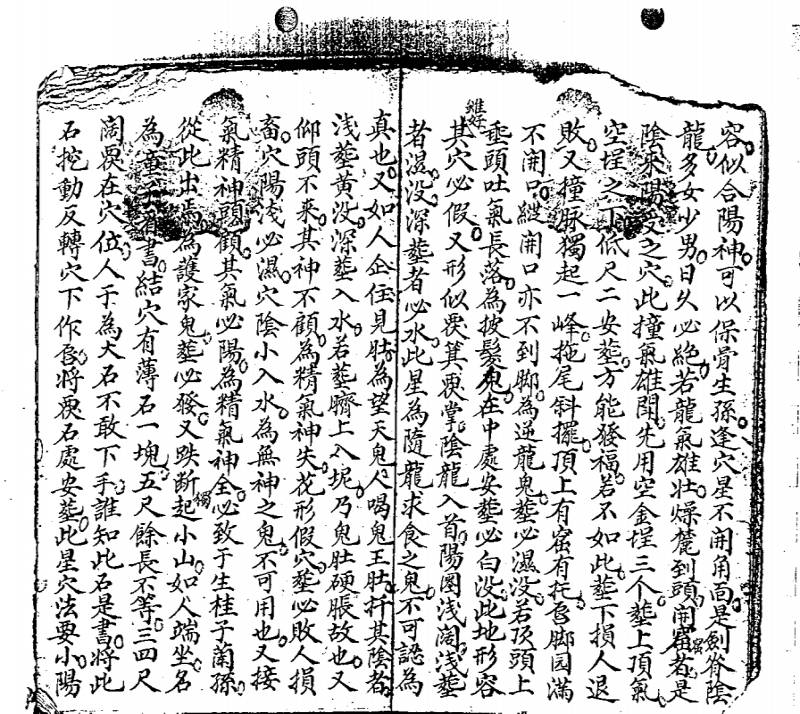 容似合陽神可以保骨生孫逢穴星不開角面是劍脊陰
龍多女少男日久必絶若龍氣雄壯燥麓到頭開窩者是
陰來陽受之穴此撞氣雄閗先用空金埕三个塟上頂氣
空埕之下低尺二安塟方能發福若不如此塟下損人退
敗又撞脉獨起一峰拖尾斜擺頂上有窩有托唇脚园滿
不開口縱開口亦不到脚為逆龍鬼塟必濕没若頂頭上
垂頭吐氣長落為披髮鬼在中處安塟必白没此地形容
雖好
其穴必假又形似覆箕覆掌陰龍入首陽圏浅濶浅塟
者濕没深塟者必水此星為隨龍求食之鬼不可認為
真也又如人企徍見肚為望天鬼人喝鬼王肚扞其陰者
浅塟黄没深塟入水若塟臍上入坭乃鬼肚硬脹故也又
仰頭不来其神不顧為精氣神失花形假穴塟必敗人損
畜穴陽浅必濕穴陰小入水為無神之鬼不可用也又接
氣精神頭顧其氣必陽為精氣神全必致于生桂子蘭孫
從此出焉為護家鬼塟必發又跌断獨起小山如人端坐名
為童子看書結穴有薄石一塊五尺餘長不等三四尺
濶覆在穴位人于為大石不敢下手誰知此石是書將此
石挖動反轉穴下作唇將覆石處安塟此星穴法要小陽